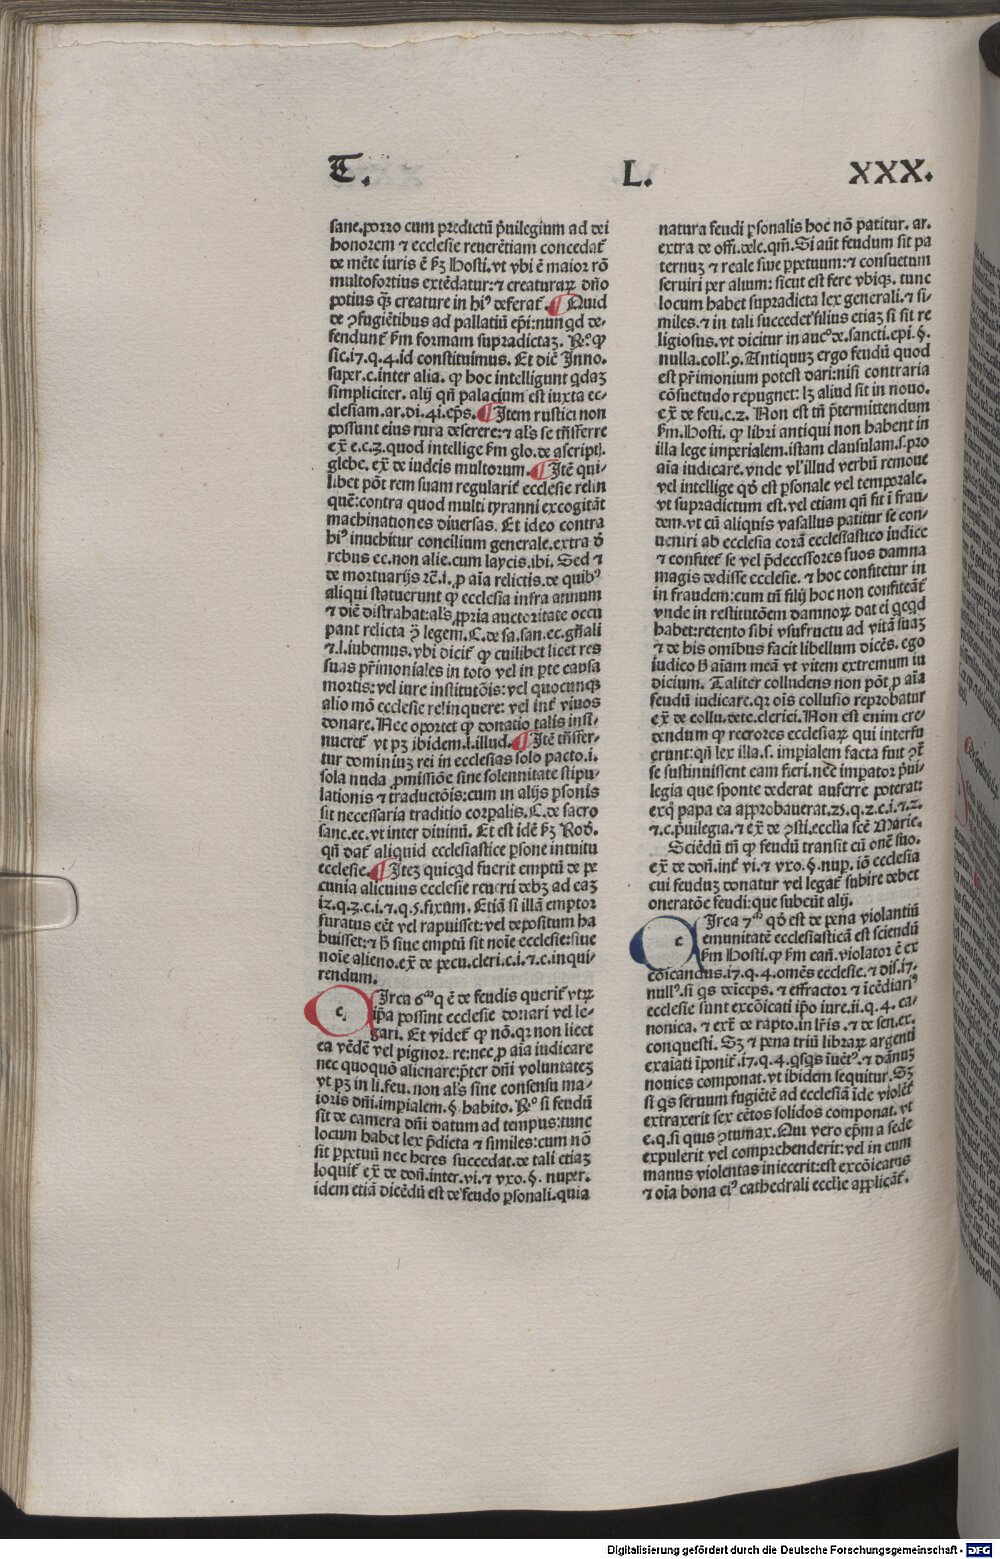 T.
L.
XXX.
sane.porro cum predictū p̄uilegium ad dei
honorem ⁊ ecclesie reuerētiam concedat᷑
de mēte iuris ē ẜꝫ Hosti.vt vbi ē maior rō
multofortius extēdatur:⁊ creaturaꝝ dn̄o
potius qꝫ creature in hiꝰ deferat᷑. ¶ Quid
de ꝯfugiētibus ad pallatiū ep̄i:nunqd de-
fendunt ẜm formam supradictaꝫ. R̄ꝰ ꝙ
sic.17.q.4.id constituimus. Et dic̄ Inno.
super.c.inter alia. ꝙ hoc intelligunt qdaꝫ
simpliciter. alij qn̄ palacium est iuxta ec-
clesiam.ar.di.41.ep̄s. ¶ Item rustici non
possunt eius rura deserere:⁊ als̄ se trāsferre
ex̄ e.c.2.quod intellige ẜm glo.de ascripti.
glebe. ex̄ de iudeis multorum. ¶ Itē qui-
libet pōt rem suam regularit᷑ ecclesie relin
quē:contra quod multi tyranni excogitāt
machinationes diuersas. Et ideo contra
hiꝰ inuehitur concilium generale.extra ð
rebus ec.non alie.cum laycis.ibi. Sed ⁊
de mortuarijs ⁊c̄.i.ꝓ aīa relictis.de quibꝰ
aliqui statuerunt ꝙ ecclesia infra annum
⁊ diē distrahat:als̄ ꝓpria auctoritate occu
pant relicta ꝯ̄ legem.C.de sa.san.ec.gn̄ali
⁊.l.iubemus.vbi dicit᷑ ꝙ cuilibet licet res
suas pr̄imoniales in toto vel in ꝑte causa
mortis:vel iure institutōis:vel quocunqꝫ
alio mō ecclesie relinquere: vel int᷑ viuos
donare. Nec oportet ꝙ donatio talis insi-
nueret᷑ vt pꝫ ibidem.l.illud. ¶ Itē trāsfer-
tur dominiuꝫ rei in ecclesias solo pacto.i.
sola nuda ꝓmissiōe sine solennitate stipu-
lationis ⁊ traductōis:cum in alijs ꝑsonis
sit necessaria traditio corꝑalis.C.de sacro
sanc.ec.vt inter diuinū. Et est idē ẜꝫ Rod̄.
qn̄ dat᷑ aliquid ecclesiastice ꝑsone intuitu
ecclesie. ¶ Iteꝫ quicqd fuerit emptū de pe
cunia alicuius ecclesie reuerti debꝫ ad eaꝫ
12.q.3.c.1.⁊.q.5.fixum. Etiā si illā emptor
furatus eēt vel rapuisset:vel depositum ha
buisset:⁊ ꝧ siue emptū sit noīe ecclesie:siue
noīe alieno.ex̄ de pecu.cleri.c.1.⁊.c.inqui-
rendum.
CIrca 6ᵐ q ē de feudis querit᷑ vtrꝝ
ip̄a possint ecclesie donari vel le-
gari. Et videt᷑ ꝙ nō.qꝛ non licet
ea vēdē vel pignor. re:nec ꝓ aīa iudicare
nec quoquō alienare:p̄ter dn̄i voluntateꝫ
vt pꝫ in li.feu. non als̄ sine consensu ma-
ioris dn̄i.imꝑialem.§.habito. R̄ꝰ si feudū
sit de camera dn̄i datum ad tempus:tunc
locum habet lex p̄dicta ⁊ similes:cum nō
sit ꝑpetuū nec heres succedat.de tali etiaꝫ
loquit᷑ ex̄ de don̄.inter.vi.⁊ vxo.§. nuper.
idem etiā dicēdū est de feudo ꝑsonali.quia
natura feudi ꝑsonalis hoc nō patitur. ar.
extra de offi.dele.qm̄. Si aūt feudum sit pa
ternuꝫ ⁊ reale siue ꝑpetuum:⁊ consuetum
seruiri per alium: sicut est fere vbiqꝫ. tunc
locum habet supradicta lex generali.⁊ si-
miles.⁊ in tali succedet᷑ filius etiaꝫ si sit re
ligiosus.vt dicitur in aucᵒ de.sancti.epi.§.
nulla.coll.9. Antiquuꝫ ergo feudū quod
est pr̄imonium potest dari:nisi contraria
cōsuetudo repugnet: lꝫ aliud sit in nouo.
ex̄ de feu.c.2. Non est tn̄ p̄termittendum
ẜm.Hosti. ꝙ libri antiqui non habent in
illa lege imperialem.istam clausulam.s.pro
aīa iudicare.vnde vl̓ illud verbū remoue
vel intellige qð est ꝑsonale vel temporale.
vt supradictum est.vel etiam qn̄ fit ī frau-
dem.vt cū aliquis vasallus patitur se con-
ueniri ab ecclesia corā ecclesiastico iudice
⁊ confitet᷑ se vel p̄decessores suos damna
magis dedisse ecclesie. ⁊ hoc confitetur in
in fraudem:cum tn̄ filij hoc non confiteāt᷑
vnde in restitutōem damnoꝝ dat ei qcqd
habet:retento sibi vsufructu ad vitā suaꝫ
⁊ de his omībus facit libellum dicēs. ego
iudico ꝧ aīam meā vt vitem extremum iu
dicium. Taliter colludens non pōt ꝓ aīa
feudū iudicare.qꝛ oīs collusio reprobatur
ex̄ de collu.dete.clerici. Non est enim cre-
dendum ꝙ rectores ecclesiaꝝ qui interfu
erunt:qn̄ lex illa.s. imꝑialem facta fuit ⁊c̄
se sustinuissent eam fieri.nec imꝑator p̄ui-
legia que sponte dederat auferre poterat:
exq̄ papa ea approbauerat.25.q.2.c.1.⁊.2.
⁊.c.p̄uilegia.⁊ ex̄ de ꝯsti.eccl̄ia sc̄e Marie.
Sciēdū tn̄ ꝙ feudū transit cū on̄e suo.
ex̄ de don̄.int᷑ vi.⁊ vxo.§.nup. iō ecclesia
cui feuduꝫ donatur vel legat᷑ subire debet
oneratōe feudi:que subeūt alij.
CIrca 7ᵐ qð est de pena violantiū
emunitatē ecclesiasticā est sciendū
ẜm Hosti. ꝙ ẜm can̄.violator ē ex
cōicandus.17.q.4.omēs ecclesie.⁊ dis.17.
nullꝰ.si qs deīceps. ⁊ effractor ⁊ īcēdiariꝰ
ecclesie sunt excōicati ip̄o iure.11.q.4. ca-
nonica. ⁊ extͣ de rapto.in lr̄is.⁊ de sen.ex.
conquesti. Sꝫ ⁊ pena triū libraꝝ argenti
exaīati īponit᷑.17.q.4.qsqs īuēt᷑.⁊ dānuꝫ
nouies componat.vt ibidem sequitur. Sꝫ
si qs seruum fugiētē ad ecclesiā īde violēt᷑
extraxerit sex cētos solidos componat. vt
e.q.si quis ꝯtumax. Qui vero ep̄m a sede
expulerit vel comprehenderit:vel in eum
manus violentas iniecerit:est excōicatus
⁊ oīa bona eiꝰ cathedrali eccl̄ie applicāt᷑.
Digitalisierung gefördert durch die Deutsche Forschungsgemeinschaft - DFG